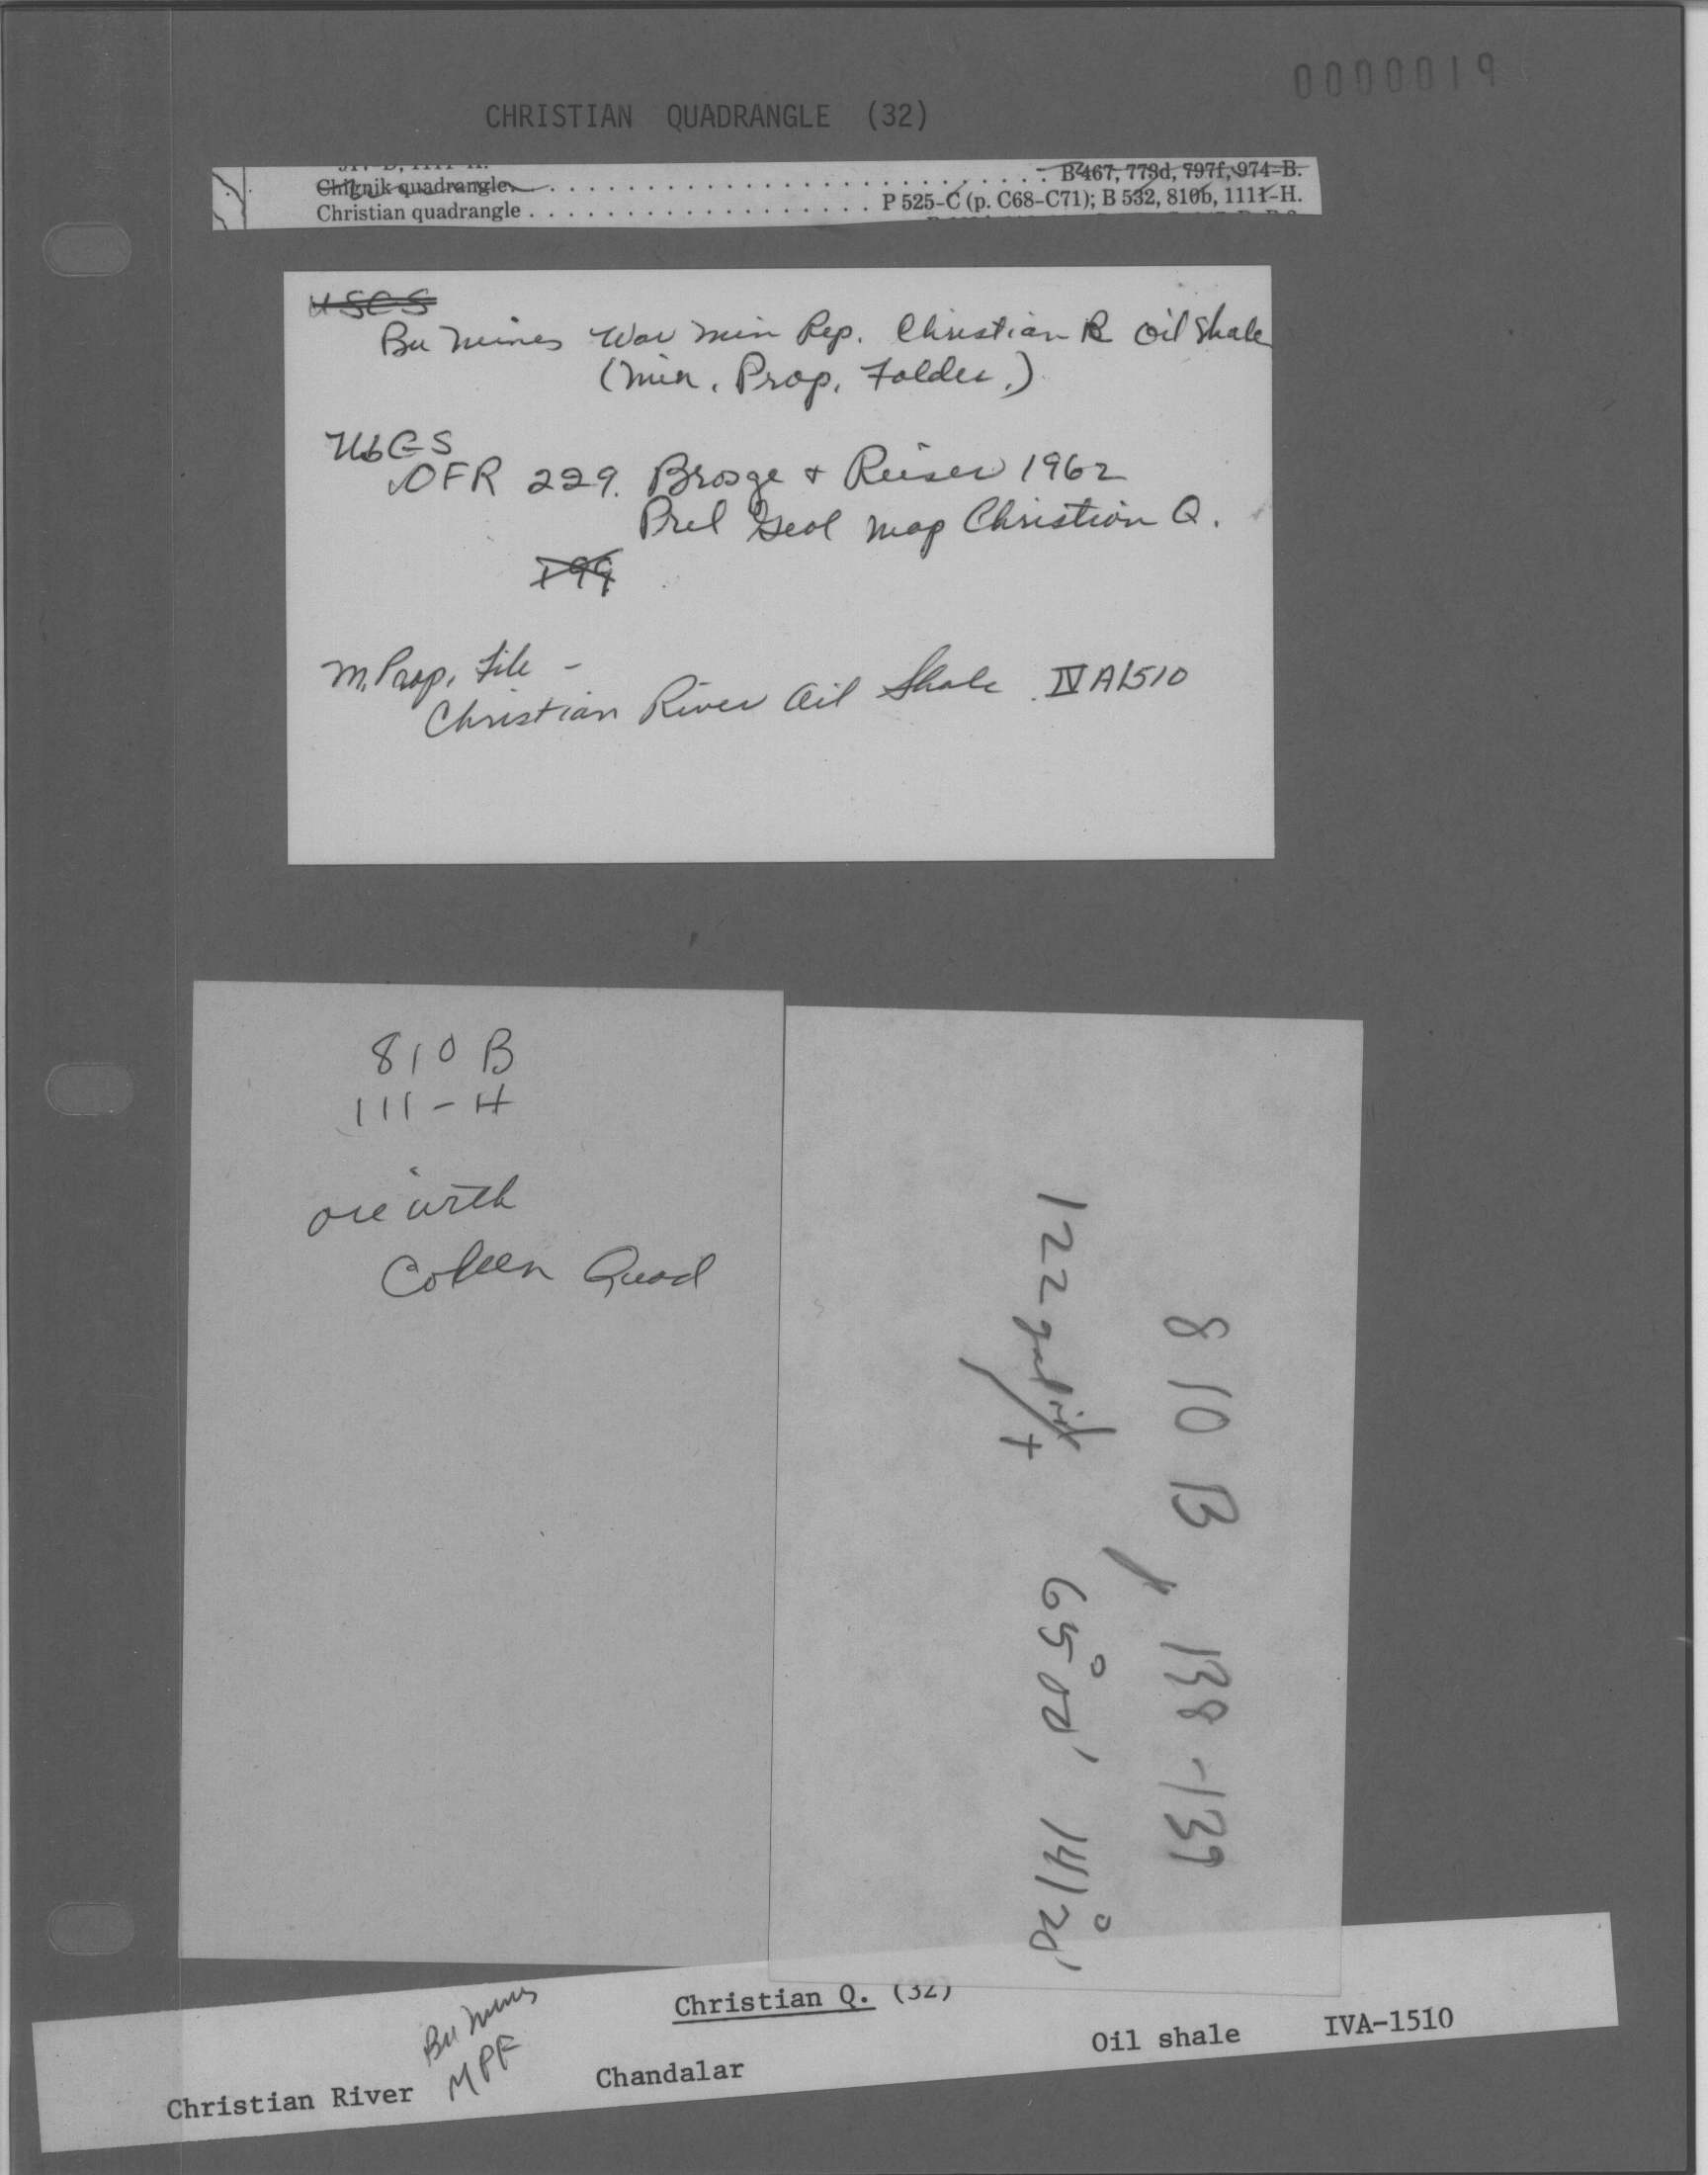 0000019
CHRISTIAN QUADRANGLE (32)
Chignik quadrangle . . . . . . . . . . . . . . . . . . . . . . . . . . B 467, 773d, 797f, 974-B.
Christian quadrangle . . . . . . . . . . . . . . . . . . P 525-C (p. C68-C71); B 532, 810b, 1111-H.
USGS
Bu Mines War Min Rep. Christian R Oil Shale
(Min. Prop. Folder.)
USGS
OFR 229. Brosge + Reiser 1962
Prel Geol Map Christian Q.
I 99
M. Prop. File -
Christian River Oil Shale IV A1510
810 B
111-H
are with
Coleen Quad
810 B, 138-139
122 gal oil/t 65° 00' 141° 20'
Christian Q. (32)
Bu Mines
MPF
Christian River Chandalar Oil shale IVA-1510